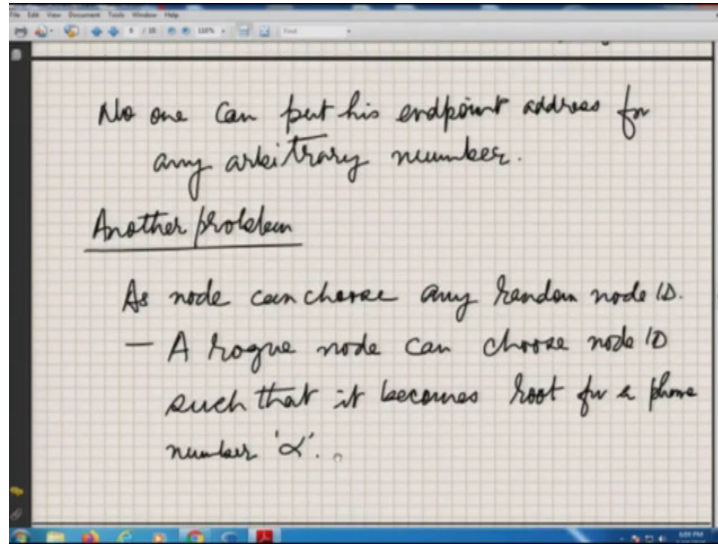 File Edit View Document Tools Window Help
6 / 18 110% Find
No one can put his endpoint address for
any arbitrary number.
Another problem
As node can choose any random node ID.
– A rogue node can choose node ID
such that it becomes root for a phone
number 'α'.